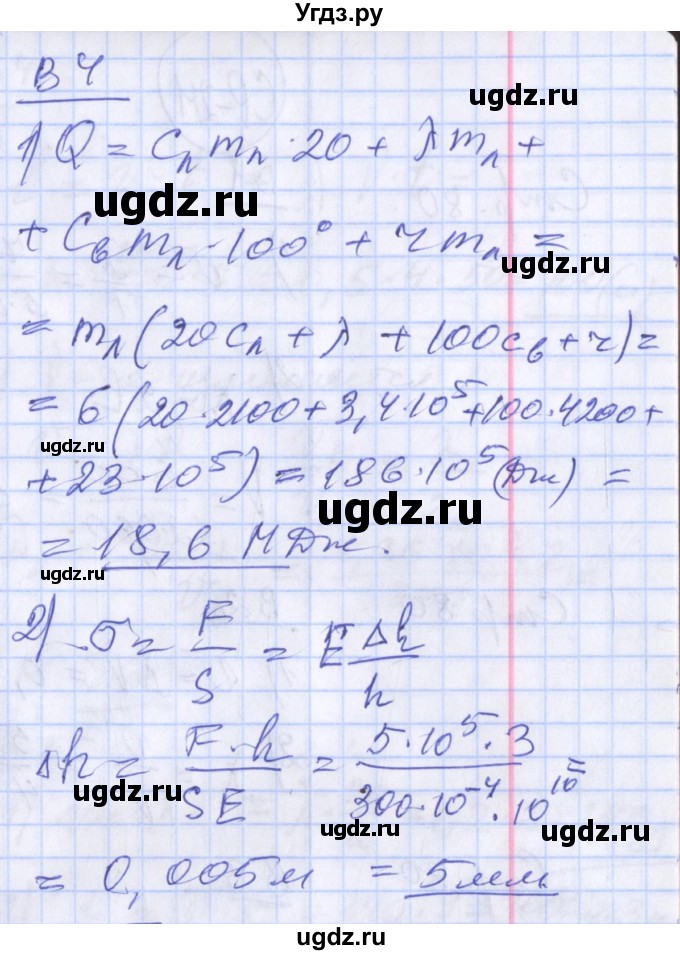 Угдз.ру
В 4
ugdz.ru
1) Q = cл mл · 20 + λ mл +
ugdz.ru
+ cв mл · 100° + r mл =
ugdz.ru
= mл (20 cл + λ + 100 cв + r) =
= 6 (20 · 2100 + 3,4 · 10⁵ + 100 · 4200 +
ugdz.ru
+ 23 · 10⁵) = 186 · 10⁵ (Дж) =
ugdz.ru
= 18,6 МДж.
ugdz.ru
2) σ = F/S = E Δh/h
Δh = F · h / SE = 5 · 10⁵ · 3 / 300 · 10⁻⁴ · 10¹⁰ =
ugdz.ru
ugdz.ru
ugdz.ru
= 0,005 м = 5 мм
ugdz.ru